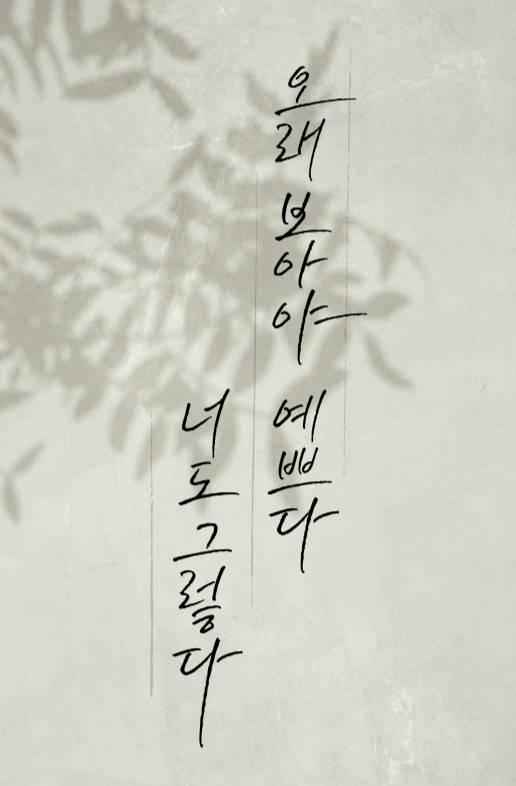 오래 보아야 예쁘다
너도 그렇다